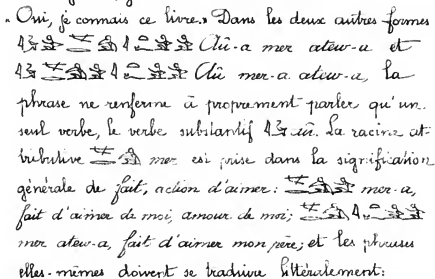 « Oui, je connais ce livre. » Dans les deux autres formes
Aû-a mer atew-a et
Aû mer-a atew-a, la
phrase ne renferme à proprement parler qu'un
seul verbe, le verbe substantif aû. La racine at-
tributive mer est prise dans la signification
générale de fait, action d'aimer: mer-a,
fait d'aimer de moi, amour de moi;
mer atew-a, fait d'aimer mon père; et les phrases
elles-mêmes doivent se traduire littéralement: